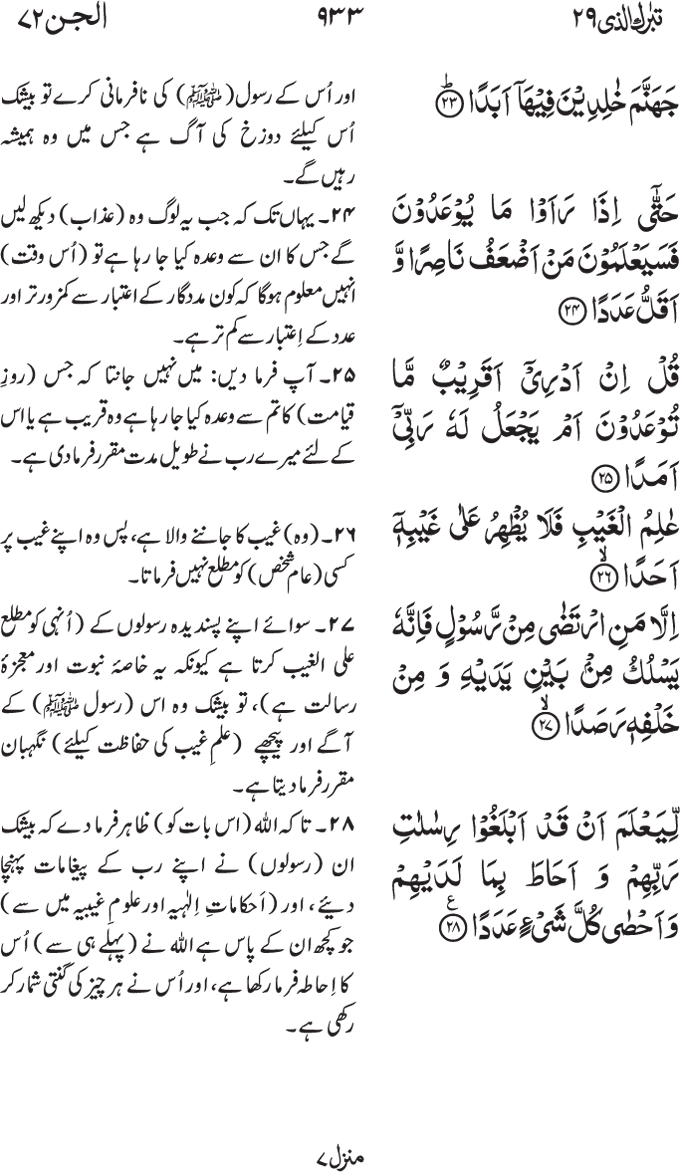 تبٰرك الذی ۲۹
۹۳۳
الجــن ۷۲
جَهَنَّمَ خٰلِدِیْنَ فِیْهَاۤ اَبَدًا ؕ۲۳
اور اُس کے رسول (ﷺ) کی نافرمانی کرے تو بیشک
اُس کیلئے دوزخ کی آگ ہے جس میں وہ ہمیشہ
رہیں گے۔
حَتّٰۤی اِذَا رَاَوْا مَا یُوْعَدُوْنَ
فَسَیَعْلَمُوْنَ مَنْ اَضْعَفُ نَاصِرًا وَّ
اَقَلُّ عَدَدًا ۲۴
۲۴۔ یہاں تک کہ جب یہ لوگ وہ (عذاب) دیکھ لیں
گے جس کا ان سے وعدہ کیا جا رہا ہے تو (اُس وقت)
انہیں معلوم ہوگا کہ کون مددگار کے اعتبار سے کمزور تر اور
عدد کے اِعتبار سے کم تر ہے۔
قُلْ اِنْ اَدْرِیْۤ اَقَرِیْبٌ مَّا
تُوْعَدُوْنَ اَمْ یَجْعَلُ لَهٗ رَبِّیْۤ
اَمَدًا ۲۵
۲۵۔ آپ فرما دیں: میں نہیں جانتا کہ جس (روزِ
قیامت) کا تم سے وعدہ کیا جا رہا ہے وہ قریب ہے یا اس
کے لئے میرے رب نے طویل مدت مقرر فرما دی ہے۔
عٰلِمُ الْغَیْبِ فَلَا یُظْهِرُ عَلٰی غَیْبِهٖۤ
اَحَدًا ۙ۲۶
۲۶۔ (وہ) غیب کا جاننے والا ہے، پس وہ اپنے غیب پر
کسی (عام شخص) کو مطلع نہیں فرماتا۔
اِلَّا مَنِ ارْتَضٰی مِنْ رَّسُوْلٍ فَاِنَّهٗ
یَسْلُكُ مِنْۢ بَیْنِ یَدَیْهِ وَ مِنْ
خَلْفِهٖ رَصَدًا ۙ۲۷
۲۷۔ سوائے اپنے پسندیدہ رسولوں کے (اُنہی کو مطلع
علی الغیب کرتا ہے کیونکہ یہ خاصۂ نبوت اور معجزۂ
رسالت ہے)، تو بیشک وہ اس (رسول ﷺ) کے
آگے اور پیچھے (علمِ غیب کی حفاظت کیلئے) نگہبان
مقرر فرما دیتا ہے۔
لِّیَعْلَمَ اَنْ قَدْ اَبْلَغُوْا رِسٰلٰتِ
رَبِّهِمْ وَ اَحَاطَ بِمَا لَدَیْهِمْ
وَ اَحْصٰی كُلَّ شَیْءٍ عَدَدًا ۲۸ ع
۲۸۔ تاکہ اللہ (اس بات کو) ظاہر فرما دے کہ بیشک
ان (رسولوں) نے اپنے رب کے پیغامات پہنچا
دیئے، اور (اَحکاماتِ اِلٰہیہ اور علومِ غیبیہ میں سے)
جو کچھ ان کے پاس ہے اللہ نے (پہلے ہی سے) اُس
کا اِحاطہ فرما رکھا ہے، اور اُس نے ہر چیز کی گنتی شمار کر
رکھی ہے۔
منزل ۷